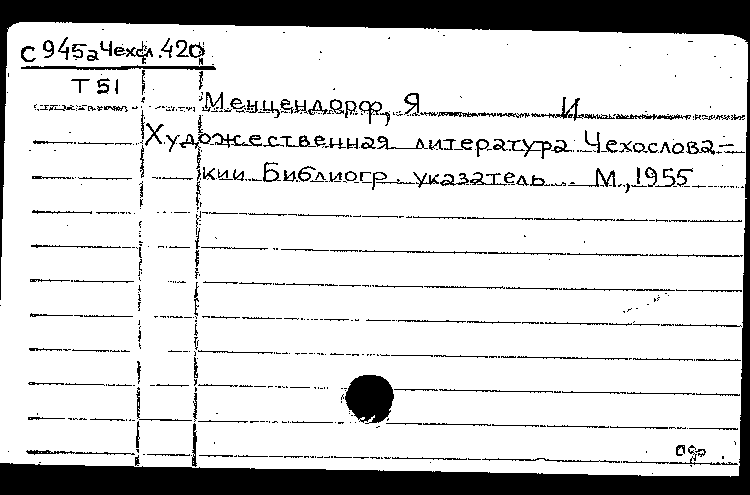 С 945а Чехсл. 420
Т 51
Менцендорф, Я И
Художественная литература Чехослова-
кии Библиогр. указатель .. М., 1955